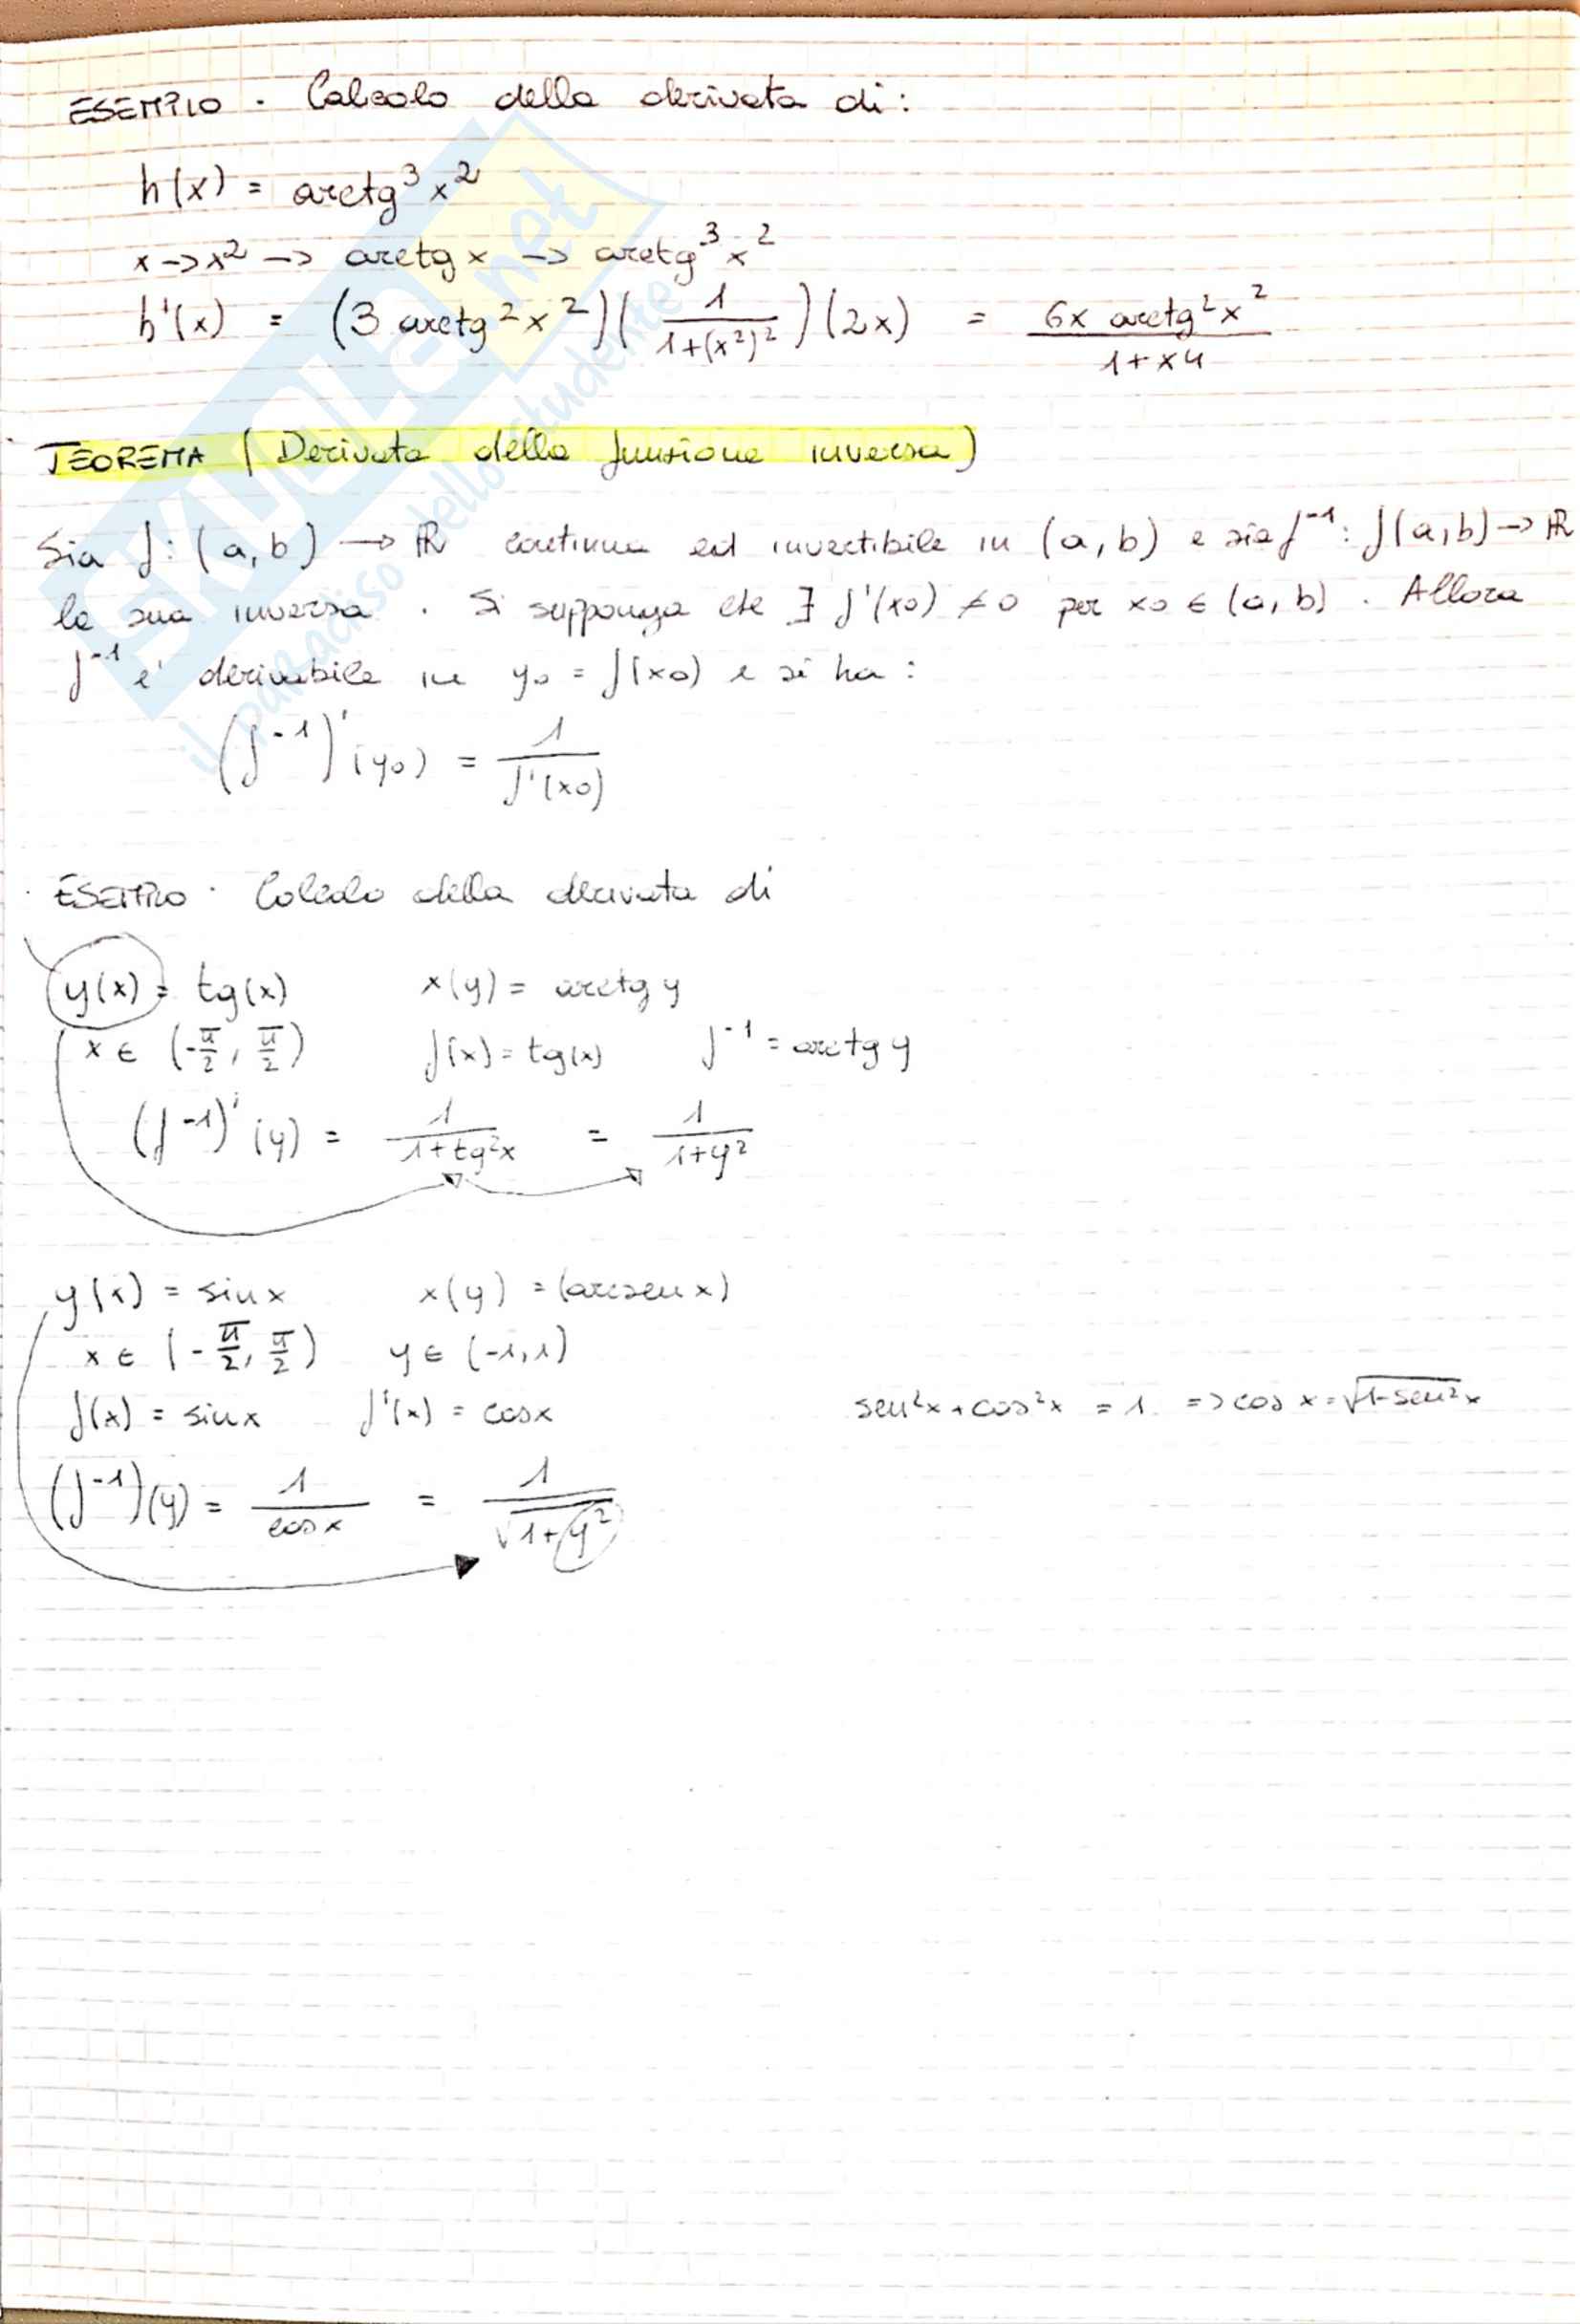 ESEMPIO . Calcolo della derivata di :
h(x) = arctg³ x²
x -> x² -> arctg x -> arctg³ x²
h'(x) = (3 arctg² x²) ( 1 / 1+(x²)² ) (2x) = 6x arctg² x² / 1+x4
TEOREMA ( Derivata della funzione inversa )
Sia f : (a, b) → ℝ continua ed invertibile in (a, b) e sia f⁻¹ : f(a,b) → ℝ
la sua inversa . Si supponga che ∃ f'(x0) ≠ 0 per x0 ∈ (a, b) . Allora
f⁻¹ e' derivabile in y0 = f(x0) e si ha :
(f⁻¹)'(y0) = 1 / f'(x0)
ESEMPIO . Calcolo della derivata di
y(x) = tg(x) x(y) = arctg y
x ∈ (-π/2, π/2) f(x) = tg(x) f⁻¹ = arctg y
(f⁻¹)'(y) = 1 / 1+tg²x = 1 / 1+y²
y(x) = sinx x(y) = (arcsen x)
x ∈ (-π/2, π/2) y ∈ (-1,1)
f(x) = sinx f'(x) = cosx sen²x + cos²x = 1 => cos x = √1-sen²x
(f⁻¹)(y) = 1 / cosx = 1 / √1+y²
SKUOLA.net
il paradiso dello studente